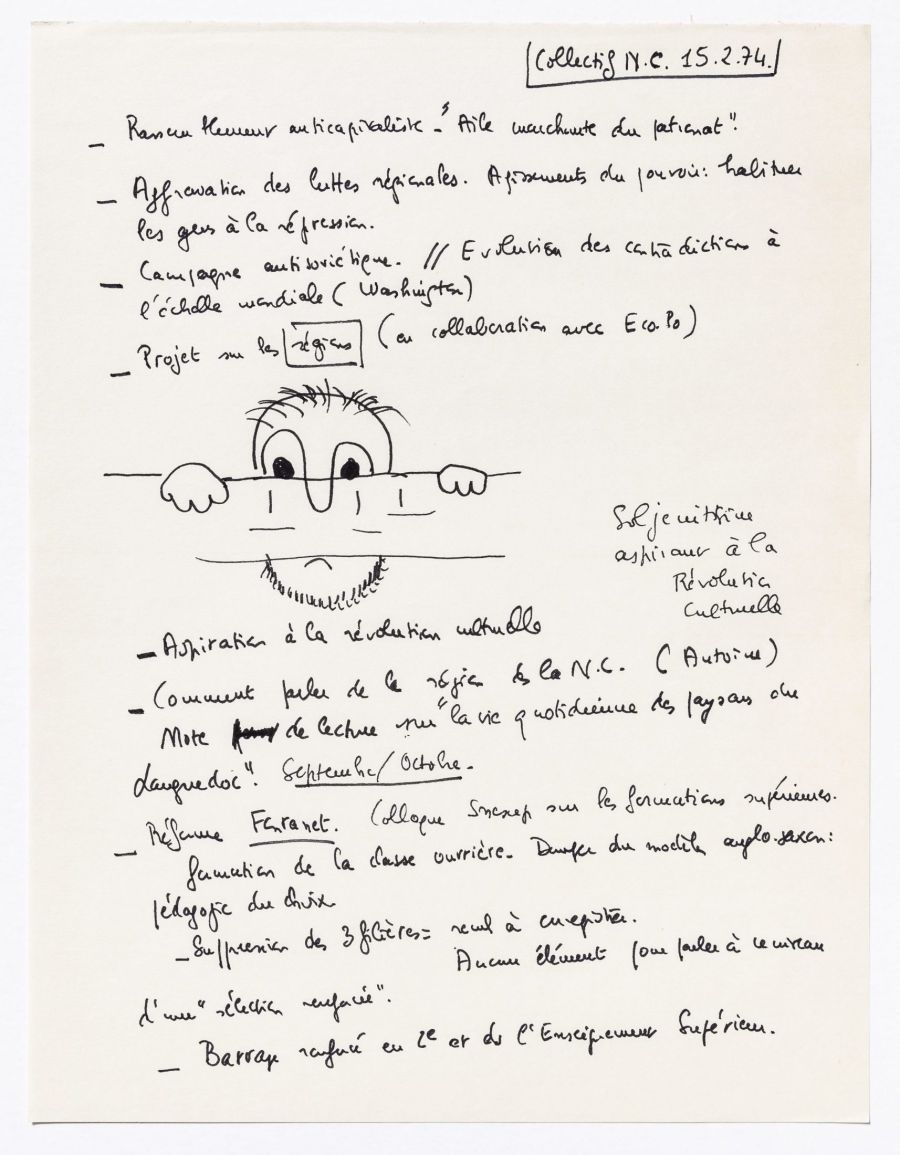 Collectif N.C. 15.2.74.
— Rassemblement anticapitaliste - "Aile marchante du patronat".
— Aggravation des luttes régionales. Agissements du pouvoir: habituer
les gens à la répression.
— Campagne antisoviétique. // Evolution des contradictions à
l'échelle mondiale (Washington)
— Projet sur les régions (en collaboration avec Eco.Po)
Soljenitsine
aspirant à la
Révolution
Culturelle
— Aspiration à la révolution culturelle
— Comment parler de la région ds la N.C. (Antoine)
Note de lecture sur "la vie quotidienne des paysans du
Languedoc". Septembre/Octobre.
— Réforme Fontanet. Colloque Snesup sur les formations supérieures.
formation de la classe ouvrière. Danger du modèle anglo-saxon:
pédagogie du choix
— Suppression des 3 filières = recul à enregistrer.
Aucun élément pour parler à ce niveau
d'une "sélection renforcée".
— Barrage renforcé en 2e et ds l'Enseignement Supérieur.